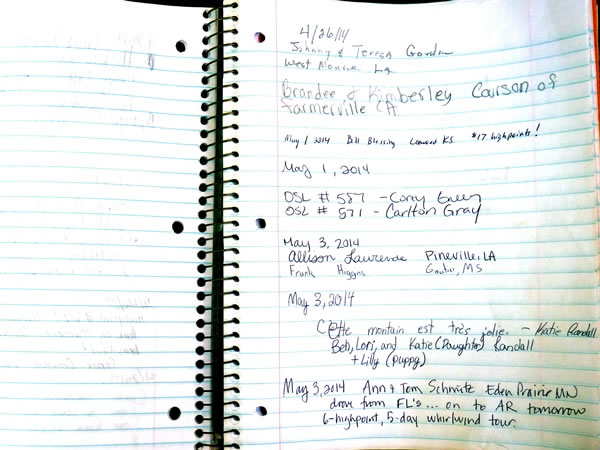 4/26/14
Johnny & Teresa Gordon
West Monroe La
Brandee & Kimberley Carson of
Farmerville LA
May 1 2014 Bill Blessing Leawood KS #17 highpoints!
May 1, 2014
OSL # 587 - Corey Green
OSL # 571 - Carlton Gray
May 3, 2014
Allison Lawrence Pineville, LA
Frank Higgins Gautier, MS
May 3, 2014
Cette montain est très jolie. - Katie Randall
Beth, Lori, and Katie (Daughter) Randall
+ Lilly (puppy)
May 3, 2014 Ann & Tom Schmitz Eden Prairie MN
drove from FL's ... on to AR tomorrow
6-highpoint, 5-day whirlwind tour.